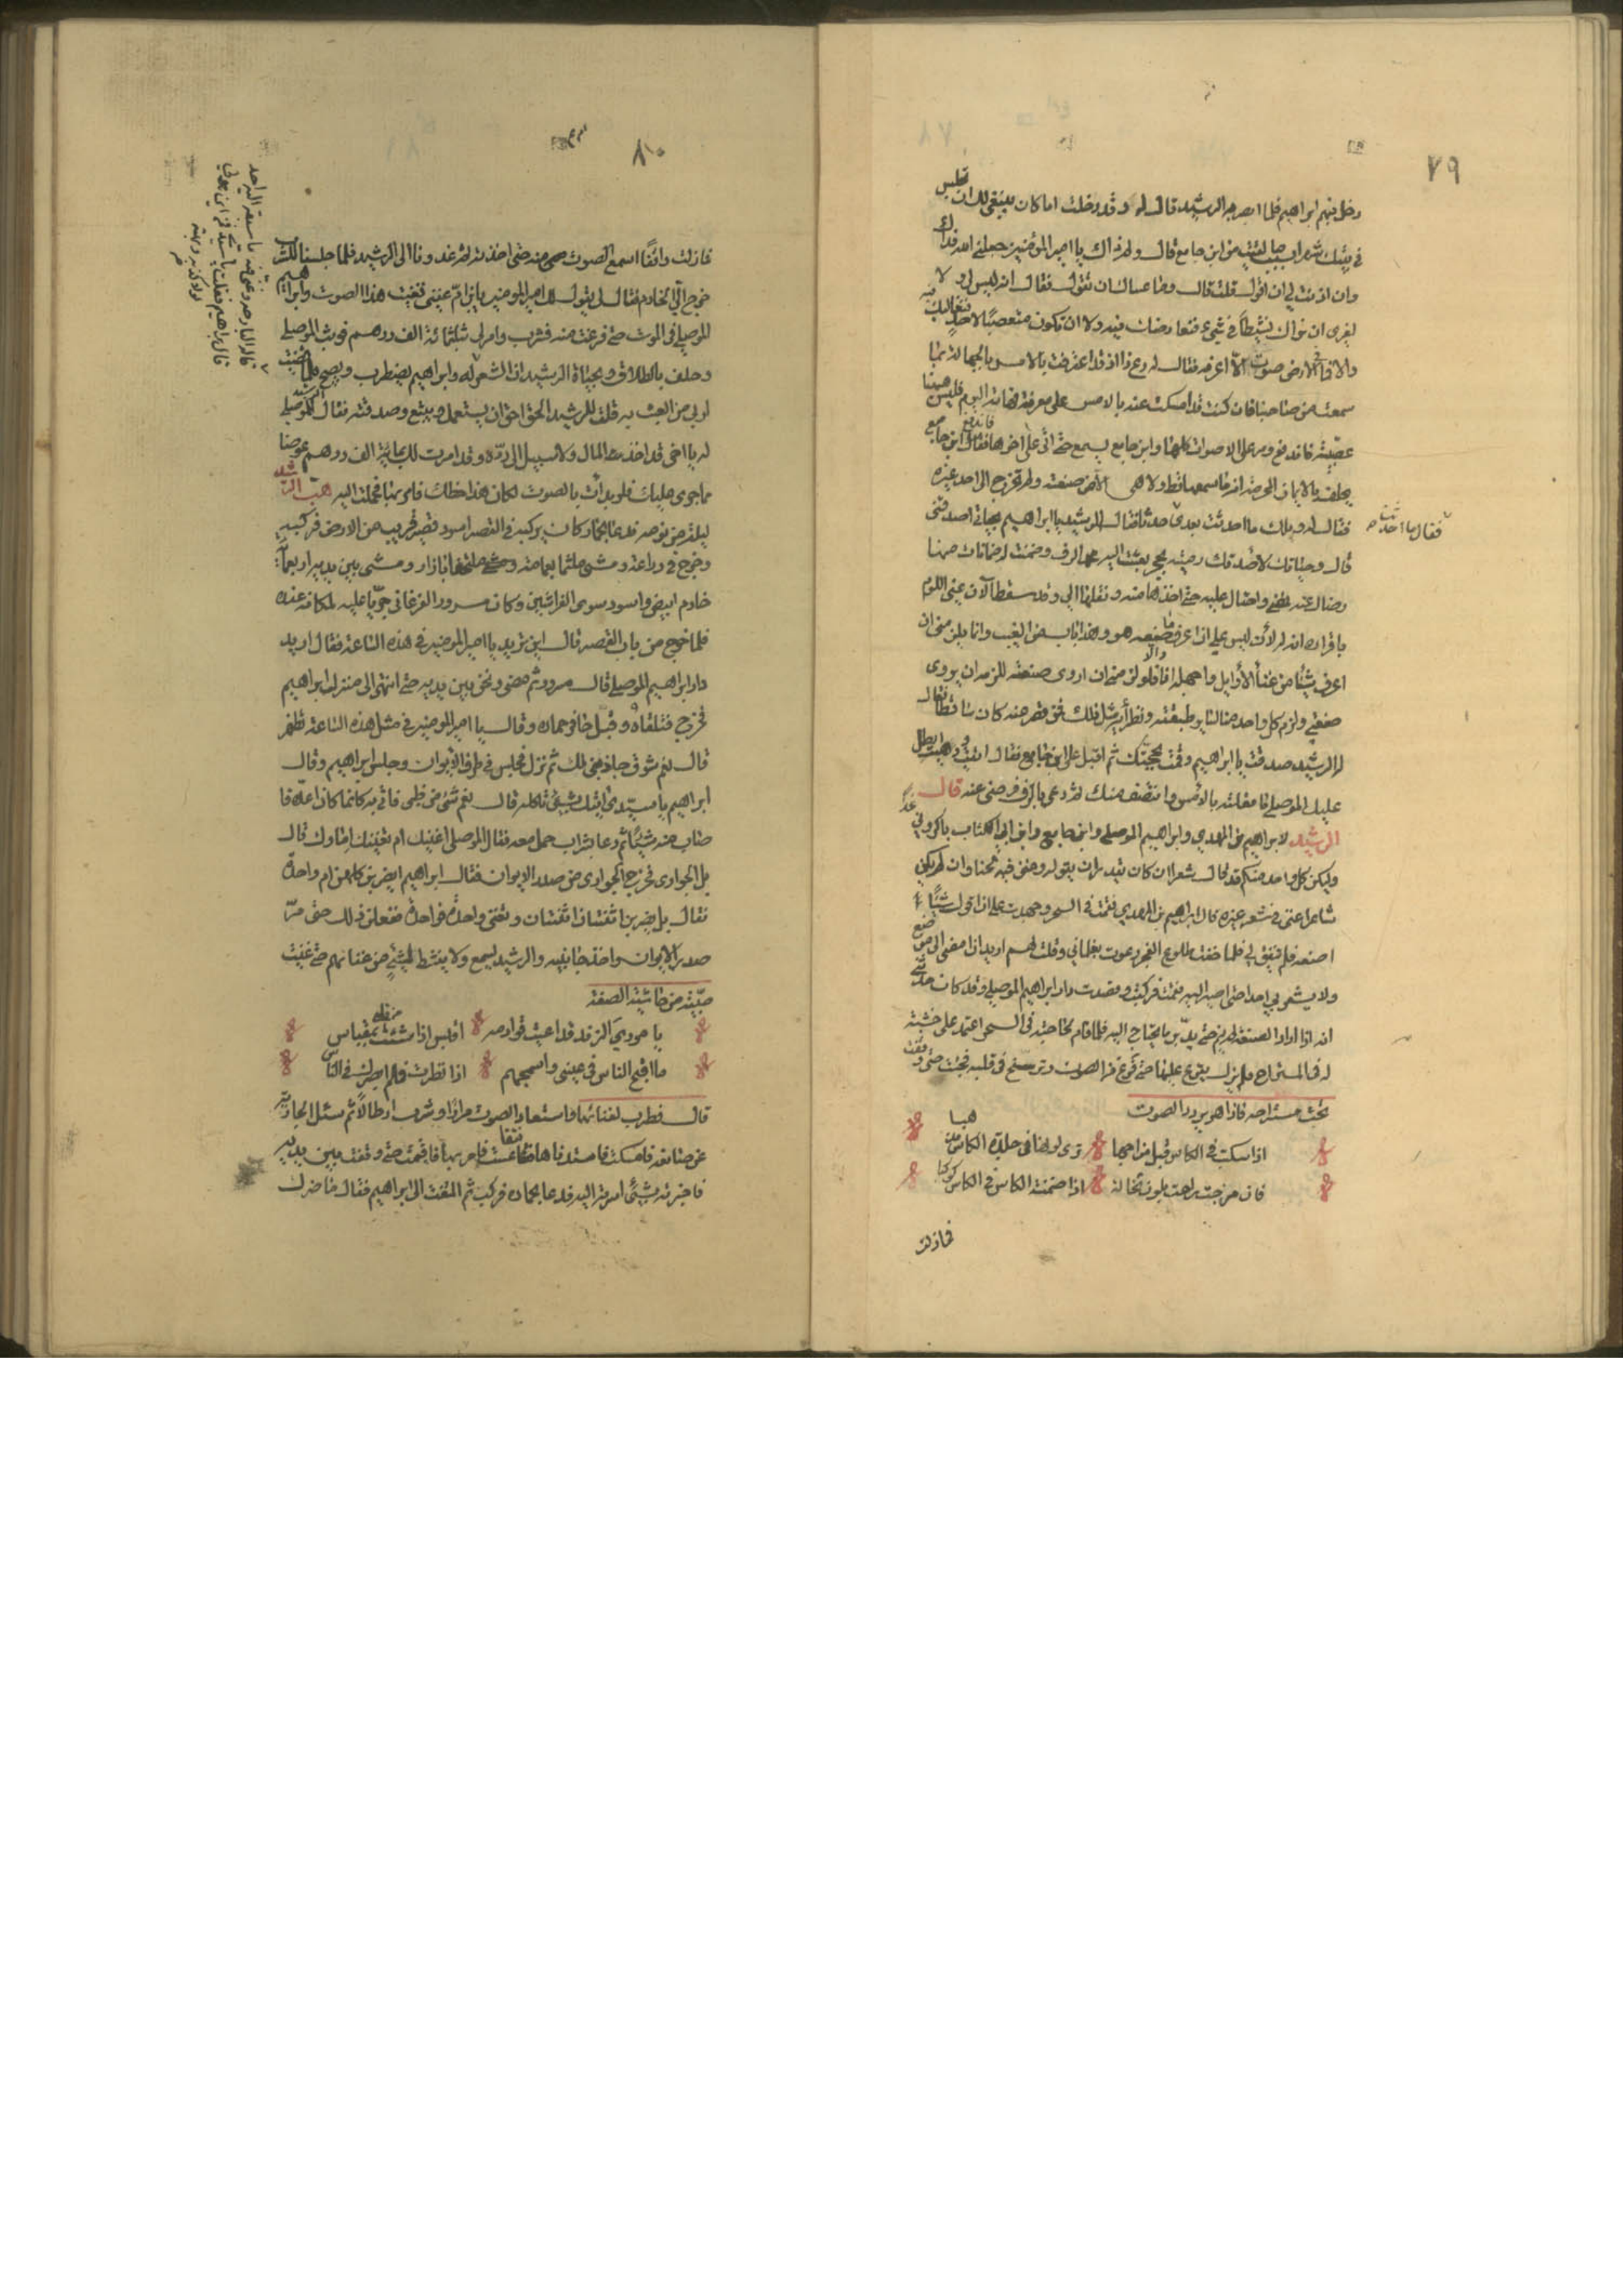 ٧٩
دخل بينهم ابراهيم فلما ابصر به الرشيد قال له وقد دخلت اما كان ينبغي لك ان تجلس
في بيتك شهرا لقيت من ابن جامع قال ولم ذاك يا امير المؤمنين جعلني الله فداك
وان اذنت لي ان اقول قلت قال وما عساك ان تقول فقال انه ليس لي ولا
لغيري ان نراك نشيطا في شيء فنعارضك فيه ولا ان تكون متعصبا لاحد فنغالبك
والا فما في الارض صوت الا اعرفه فقال له دع ذا قد اعترفت بالامس بالجهالة بما
سمعت من صاحبنا فان كنت قد امسكت عنه بالامس على معرفة فهاته اليوم فليس ههنا
عصبية فاندفع ومر على الاصوات كلها وابن جامع يسمع حتى اتى على اخرها فاندفع ابن جامع
يحلف بالايمان المحرجة انه ما سمعها قط ولا هي الا من صنعته ولم تخرج الى احد غيره
فقال له ويلك ما احدثت بعدي فقال الرشيد يا ابراهيم بحياتي اصدقني
فقال ما احدثت
قال وحياتك لاصدقنك رميته بحجره بعثت اليه محمد الزف وضمنت له ضمانات منها
رضاك عنه فمضى واحتال عليه حتى اخذها منه ونقلها الي وقد سقط الآن عني اللوم
باقراره انه ليس علي ان اعرف ما صنعه هو وهذا باب من الغيب وانما يلزمني ان
اعرف شيئا من غناء الاوائل واجهله انا والا فلو لزمني ان اروي صنعته للزمه ان يروي
صنعتي ولزم كل واحد منا لسائر طبقته ونظرائه مثل ذلك فمن قصر عنه كان ساقطا فقال
له الرشيد صدقت يا ابراهيم وقمت بحجتك ثم اقبل على ابن جامع فقال
عليك الموصلي ما فعلته بالامس وانتصف منك ثم دعي بالزف فرضي عنه قال
الرشيد لابراهيم بن المهدي وابراهيم الموصلي وابن جامع وابن ابي الكنات باكروني غدا
وليكن كل واحد منكم قد قال شعرا ان كان يقدر ان يقوله وغنى فيه لحنا وان لم يكن
شاعرا غنى في شعر غيره قال ابراهيم بن المهدي فقمت في السحر وجهدت على ان اقول شيئا
اصنعه فلم يتفق لي فلما خفت طلوع الفجر دعوت بغلماني وقلت لهم اريد ان امضي الى موضع
ولا يشعر بي احد حتى اصير اليه فقمت فركبت وقصدت دار ابراهيم الموصلي وقد كان حدثني
انه اذا اراد الصنعة لم ينم حتى يدبر ما يحتاج اليه فاذا قام لحاجته في السحر اعتمد على خشبة
له في المستراح فلم يزل يقرع عليها حتى يفرغ من الصوت ويرسخ في قلبه فجئت حتى وقفت
تحت مستراحه فاذا هو يردد الصوت
اذا سكبت في الكاس قبل مزاجها ترى لونها في جلدة الكاس مذهبا
فان مزجت راعت بلون تخاله اذا ضمنته الكاس في الكاس كوكبا
فما زلت
٨٠
فما زلت واقفا اسمع الصوت منه حتى اخذته ثم غدونا الى الرشيد فلما جلسنا للشرب
خرج الي الخادم فقال لي يقول لك امير المؤمنين يا ابن ام غنني فغنيت هذا الصوت وابراهيم
الموصلي في الموت حتى فرغت منه فشرب وامر لي بثلثمائة الف درهم فوثب الموصلي
وحلف بالطلاق وبحياة الرشيد ان الشعر له وابراهيم يضطرب ويصيح فلما
اربي من العبث به قلت للرشيد الحق احق ان يستعمل ويتبع وصدقته فقال للموصلي
له يا اخي قد اخذت المال ولا سبيل الى رده وقد امرت لك بمائة الف درهم عوضا
مما جرى عليك فلو بدات بالصوت لكان هذا حظك فامر بها فحملت اليه هب الرشيد
ليلة من نومه فدعا بحمار كان يركبه في القصر اسود قصير قريب من الارض فركبه
وخرج في دراعة وشي متلثما بعمامة وشي ملتحفا بازار وشي بين يديه اربعمائة
خادم ابيض واسود سوى الفراشين وكان مسرور الفرغاني جريا عليه لمكانه عنده
فلما خرج من باب القصر قال اين تريد يا امير المؤمنين في هذه الساعة فقال اريد
دار ابراهيم الموصلي قال مسرور ثم مضى ونحن بين يديه حتى انتهى الى منزل ابراهيم
فخرج فتلقاه وقبل حافر حماره وقال يا امير المؤمنين في مثل هذه الساعة تظهر
قال نعم شوق جاذبني لك ثم نزل فجلس في طرف الايوان وجلس ابراهيم وقال
ابراهيم يا سيدي اتيتك بشيء تاكله قال نعم شيء من ظبي فاتي به كانما كان اعده
فاصاب منه شيئا ثم دعا بشراب حمل معه فقال الموصلي اغنيك ام تغنيك اماؤك قال
بل الجواري فخرج الجواري من صدر الايوان فقال ابراهيم ايضربن كلهن ام واحدة
فقال بل يضربن اثنتان اثنتان وتغني واحدة فواحدة ففعلن ذلك حتى مر
صدر الايوان واحد جانبيه والرشيد يسمع ولا ينشط لشيء من غنائهم حتى غنت
صبية من حاشية الصفة
يا موري الزند قد اعيت قوادحه اقبس اذا شئت من قلبي بمقباس
ما اقبح الناس في عيني واسمجهم اذا نظرت فلم ابصرك في الناس
قال فطرب لغنائها واستعاد الصوت مرارا وشرب ارطالا ثم سئل الجارية
عن صانعه فامسكت فاستدناها فتقاعست فامر بها فاقيمت حتى وقفت بين يديه
فاخبرته بشيء اسرته اليه فدعا بحماره فركب ثم التفت الى ابراهيم فقال ما ضرك